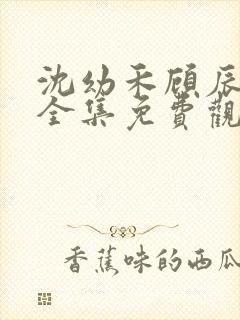 沈幼禾顾辰
全集免費觀
香蕉味的西瓜